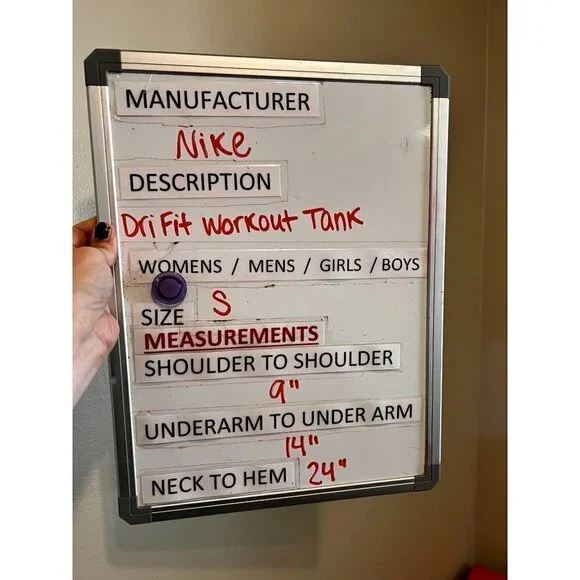 MANUFACTURER
Nike
DESCRIPTION
Dri Fit Workout Tank
WOMENS / MENS / GIRLS / BOYS
SIZE S
MEASUREMENTS
SHOULDER TO SHOULDER
9"
UNDERARM TO UNDER ARM
14"
NECK TO HEM 24"